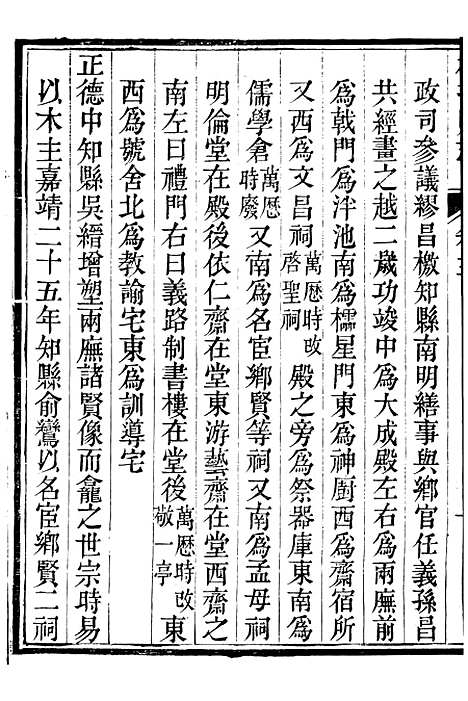 政司參議繆昌檄知縣南明繕事與鄉官任義孫昌
共經畫之越二歲功竣中爲大成殿左右爲兩廡前
爲戟門爲泮池南爲櫺星門東爲神厨西爲齋宿所
又西爲文昌祠萬歷時改啓聖祠殿之旁爲祭器庫東南爲
儒學倉萬歷時廢又南爲名宦鄉賢等祠又南爲孟母祠
明倫堂在殿後依仁齋在堂東游藝齋在堂西齋之
南左曰禮門右曰義路制書樓在堂後萬歷時改敬一亭東
西爲號舍北爲教諭宅東爲訓導宅
正德中知縣吳縉增塑兩廡諸賢像而龕之世宗時易
以木主嘉靖二十五年知縣俞鸞以名宦鄉賢二祠